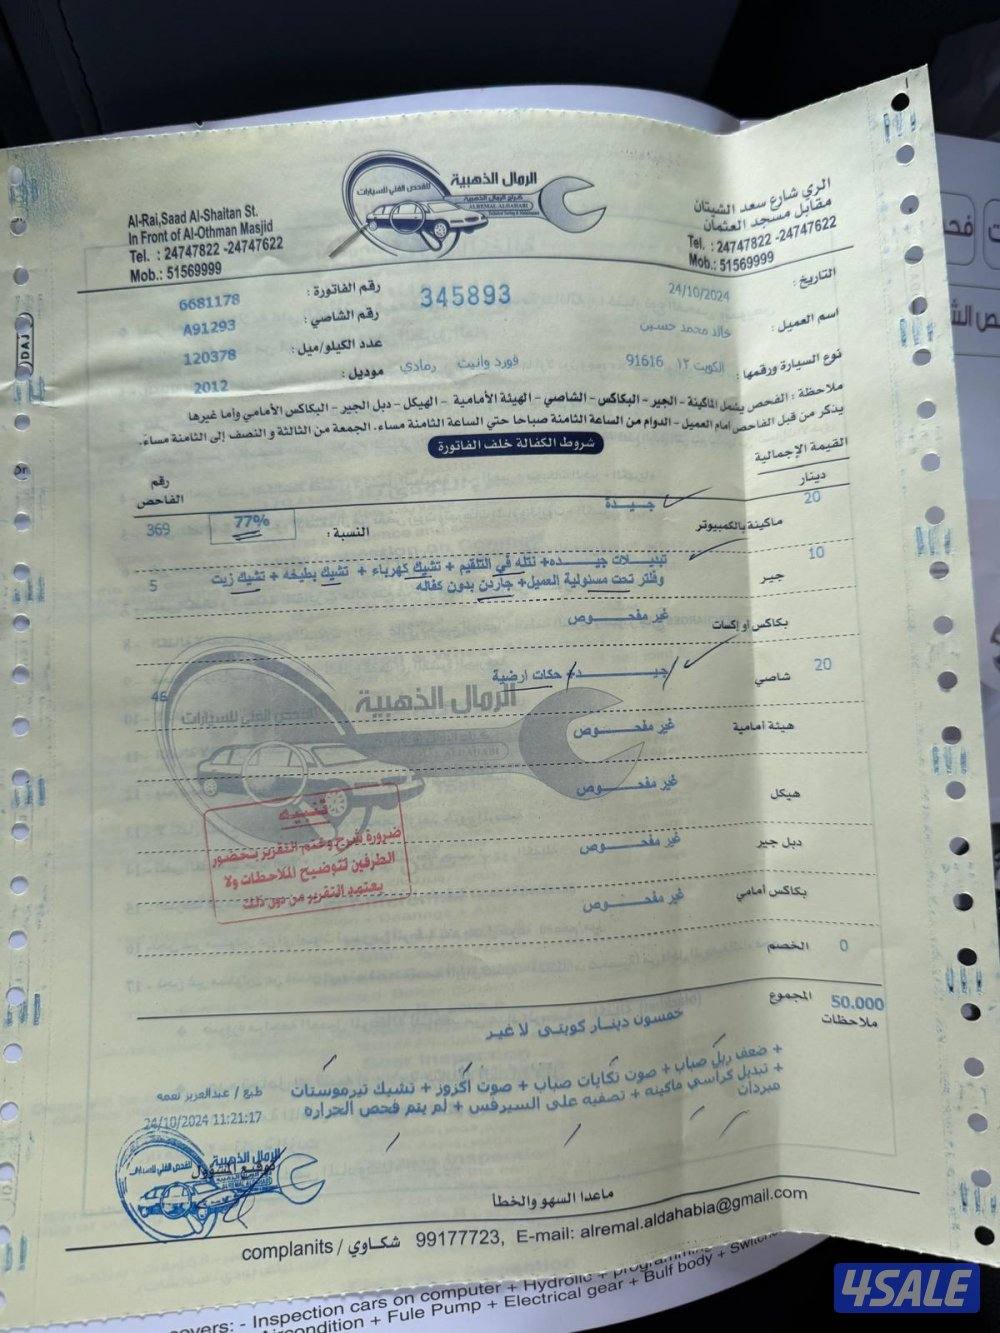 الرمال الذهبية
كراج الرمال الذهبية
ALREMAL ALDAHABI
للفحص الفني للسيارات
Al-Rai,Saad Al-Shaitan St.
In Front of Al-Othman Masjid
Tel. : 24747822 -24747622
Mob.: 51569999
الري شارع سعد الشيتان
مقابل مسجد العثمان
Tel. : 24747822 -24747622
Mob.: 51569999
التاريخ : 24/10/2024
345893
رقم الفاتورة : 6681178
اسم العميل : خالد محمد حسين
رقم الشاصي : A91293
نوع السيارة ورقمها : الكويت ١٢ 91616 فورد وانيت رمادي
عدد الكيلو/ميل : 120378
موديل : 2012
ملاحظة : الفحص يشمل الماكينة - الجير - البكاكس - الشاصي - الهيئة الأمامية - الهيكل - دبل الجير - البكاكس الأمامي وأما غيرها
يذكر من قبل الفاحص أمام العميل - الدوام من الساعة الثامنة صباحا حتي الساعة الثامنة مساء، الجمعة من الثالثة و النصف إلى الثامنة مساء.
شروط الكفالة خلف الفاتورة
القيمة الإجمالية
دينار
رقم
الفاحص
20 ماكينة بالكمبيوتر جيدة النسبة : 77% 369
10 جير تبديلات جيده+ نتله في التلقيم + تشيك كهرباء + تشيك بطيخه + تشيك زيت 5
وفلتر تحت مسئولية العميل+ جاردن بدون كفاله
بكاكس أو إكسات غير مفحوص
20 شاصي جيدة/ حكات ارضية 46
هيئة أمامية غير مفحوص
هيكل غير مفحوص
دبل جير غير مفحوص
بكاكس أمامي غير مفحوص
الخصم 0
الرمال الذهبية
للفحص الفني للسيارات
تنبيه
ضرورة شرح وختم التقرير بحضور
الطرفين لتوضيح الملاحظات ولا
يعتمد التقرير من دون ذلك
المجموع 50.000
خمسون دينار كويتى لا غير
ملاحظات
+ ضعف ربل صباب + صوت تكايات صباب + صوت أكزوز + تشيك تيرموستات
+ تبديل كراسي ماكينه + تصفيه على السيرفس + لم يتم فحص الحراره
مبردات
طبع / عبدالعزيز نعمه
24/10/2024 11:21:17
توقيع المسؤول
الرمال الذهبية
للفحص الفني للسيارات
ماعدا السهو والخطأ
complanits / شكاوي 99177723, E-mail: alremal.aldahabia@gmail.com
overs: - Inspection cars on computer + Hydrolic + programming
condition + Fule Pump + Electrical gear + Bulf body + Switch
4SALE